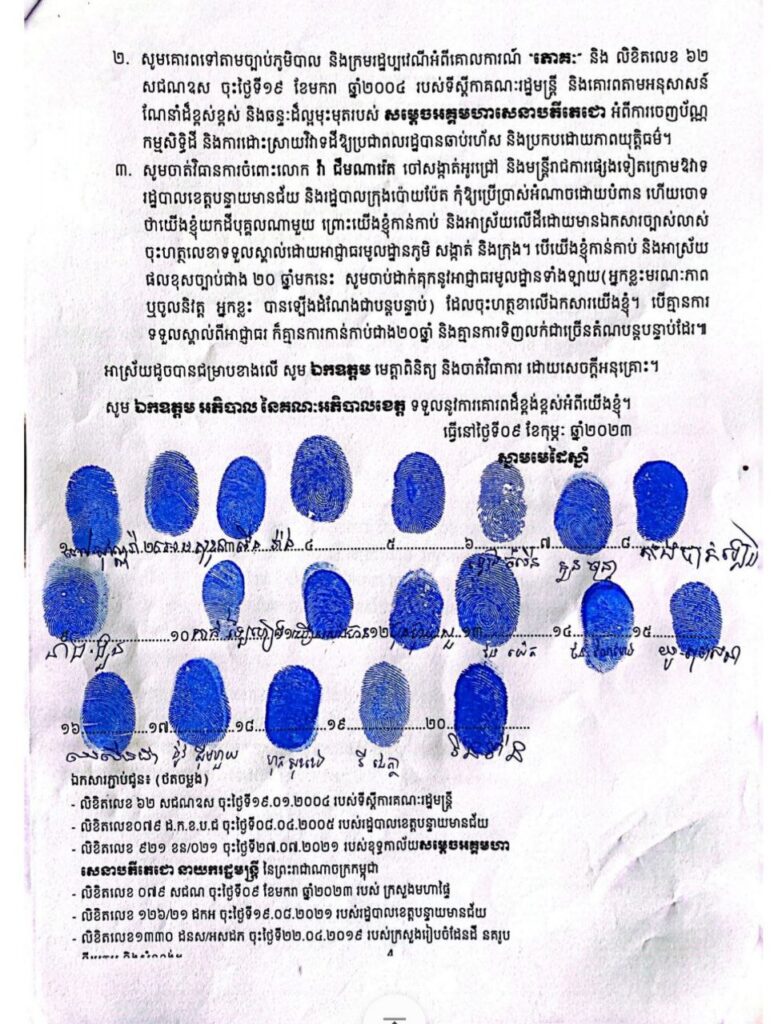 ២. សូមគោរពទៅតាមច្បាប់ភូមិបាល និងក្រមរដ្ឋប្បវេណីអំពីគោលការណ៍ "ភោគៈ" និង លិខិតលេខ ៦២
សជណខស ចុះថ្ងៃទី១៩ ខែមករា ឆ្នាំ២០០៤ របស់ទីស្តីកាគណៈរដ្ឋមន្ត្រី និងគោរពតាមអនុសាសន៍
ណែនាំដ៏ខ្ពស់ខ្ពស់ និងឆន្ទៈដ៏ល្អមុះមុតរបស់ សម្តេចអគ្គមហាសេនាបតីតេជោ អំពីការចេញប័ណ្ណ
កម្មសិទ្ធិដី និងការដោះស្រាយវិវាទដីឱ្យប្រជាពលរដ្ឋបានឆាប់រហ័ស និងប្រកបដោយភាពយុត្តិធម៌។
៣. សូមចាត់វិធានការចំពោះលោក វ៉ា ជីមណារ៉េត ចៅសង្កាត់អូរជ្រៅ និងមន្ត្រីរាជការផ្សេងទៀតក្រោមឱវាទ
រដ្ឋបាលខេត្តបន្ទាយមានជ័យ និងរដ្ឋបាលក្រុងប៉ោយប៉ែត កុំឱ្យប្រើប្រាស់អំណាចដោយបំពាន ហើយចោទ
ថាយើងខ្ញុំយកដីបុគ្គលណាមួយ ព្រោះយើងខ្ញុំកាន់កាប់ និងអាស្រ័យលើដីដោយមានឯកសារច្បាស់លាស់
ចុះហត្ថលេខាទទួលស្គាល់ដោយអាជ្ញាធរមូលដ្ឋានភូមិ សង្កាត់ និងក្រុង។ បើយើងខ្ញុំកាន់កាប់ និងអាស្រ័យ
ផលខុសច្បាប់ជាង ២០ ឆ្នាំមកនេះ សូមចាប់ដាក់គុកនូវអាជ្ញាធរមូលដ្ឋានទាំងឡាយ(អ្នកខ្លះមរណៈភាព
ឬចូលនិវត្ត អ្នកខ្លះ បានឡើងដំណែងជាបន្តបន្ទាប់) ដែលចុះហត្ថខាលើឯកសារយើងខ្ញុំ។ បើគ្មានការ
ទទួលស្គាល់ពីអាជ្ញាធរ ក៏គ្មានការកាន់កាប់ជាង២០ឆ្នាំ និងគ្មានការទិញលក់ជាច្រើនតំណបន្តបន្ទាប់ដែរ៕
អាស្រ័យដូចបានជម្រាបខាងលើ សូម ឯកឧត្តម មេត្តាពិនិត្យ និងចាត់វិធាការ ដោយសេចក្តីអនុគ្រោះ។
សូម ឯកឧត្តម អភិបាល នៃគណៈអភិបាលខេត្ត ទទួលនូវការគោរពដ៏ខ្ពង់ខ្ពស់អំពីយើងខ្ញុំ។
ធ្វើនៅថ្ងៃទី០៩ ខែកុម្ភៈ ឆ្នាំ២០២៣
ស្នាមមេដៃស្តាំ
១ ២ ៤ ៥ ៦ ៧ ៨
៩ ១០ ១២ ១៣ ១៤ ១៥
១៦ ១៧ ១៨ ១៩ ២០
ឯកសារភ្ជាប់ជូន៖ (ថតចម្លង)
- លិខិតលេខ ៦២ សជណខស ចុះថ្ងៃទី១៩.០១.២០០៤ របស់ទីស្តីការគណៈរដ្ឋមន្ត្រី
- លិខិតលេខ០៧៩ ដ.ក.ខ.ប.ជ ចុះថ្ងៃទី០៨.០៤.២០០៥ របស់រដ្ឋបាលខេត្តបន្ទាយមានជ័យ
- លិខិតលេខ ៩២១ ខន/០២១ ចុះថ្ងៃទី២៧.០៧.២០២១ របស់ខុទ្ទកាល័យសម្តេចអគ្គមហា
សេនាបតីតេជោ នាយករដ្ឋមន្ត្រី នៃព្រះរាជាណាចក្រកម្ពុជា
- លិខិតលេខ ០៧៩ សជណ ចុះថ្ងៃទី០៩ ខែមករា ឆ្នាំ២០២៣ របស់ ក្រសួងមហាផ្ទៃ
- លិខិតលេខ ១២៦/២១ ដកអ ចុះថ្ងៃទី១៩.០៨.២០២១ របស់រដ្ឋបាលខេត្តបន្ទាយមានជ័យ
- លិខិតលេខ១៣៣០ ដនស/អសដភ ចុះថ្ងៃទី២២.០៤.២០១៩ របស់ក្រសួងរៀបចំដែនដី នគរូប